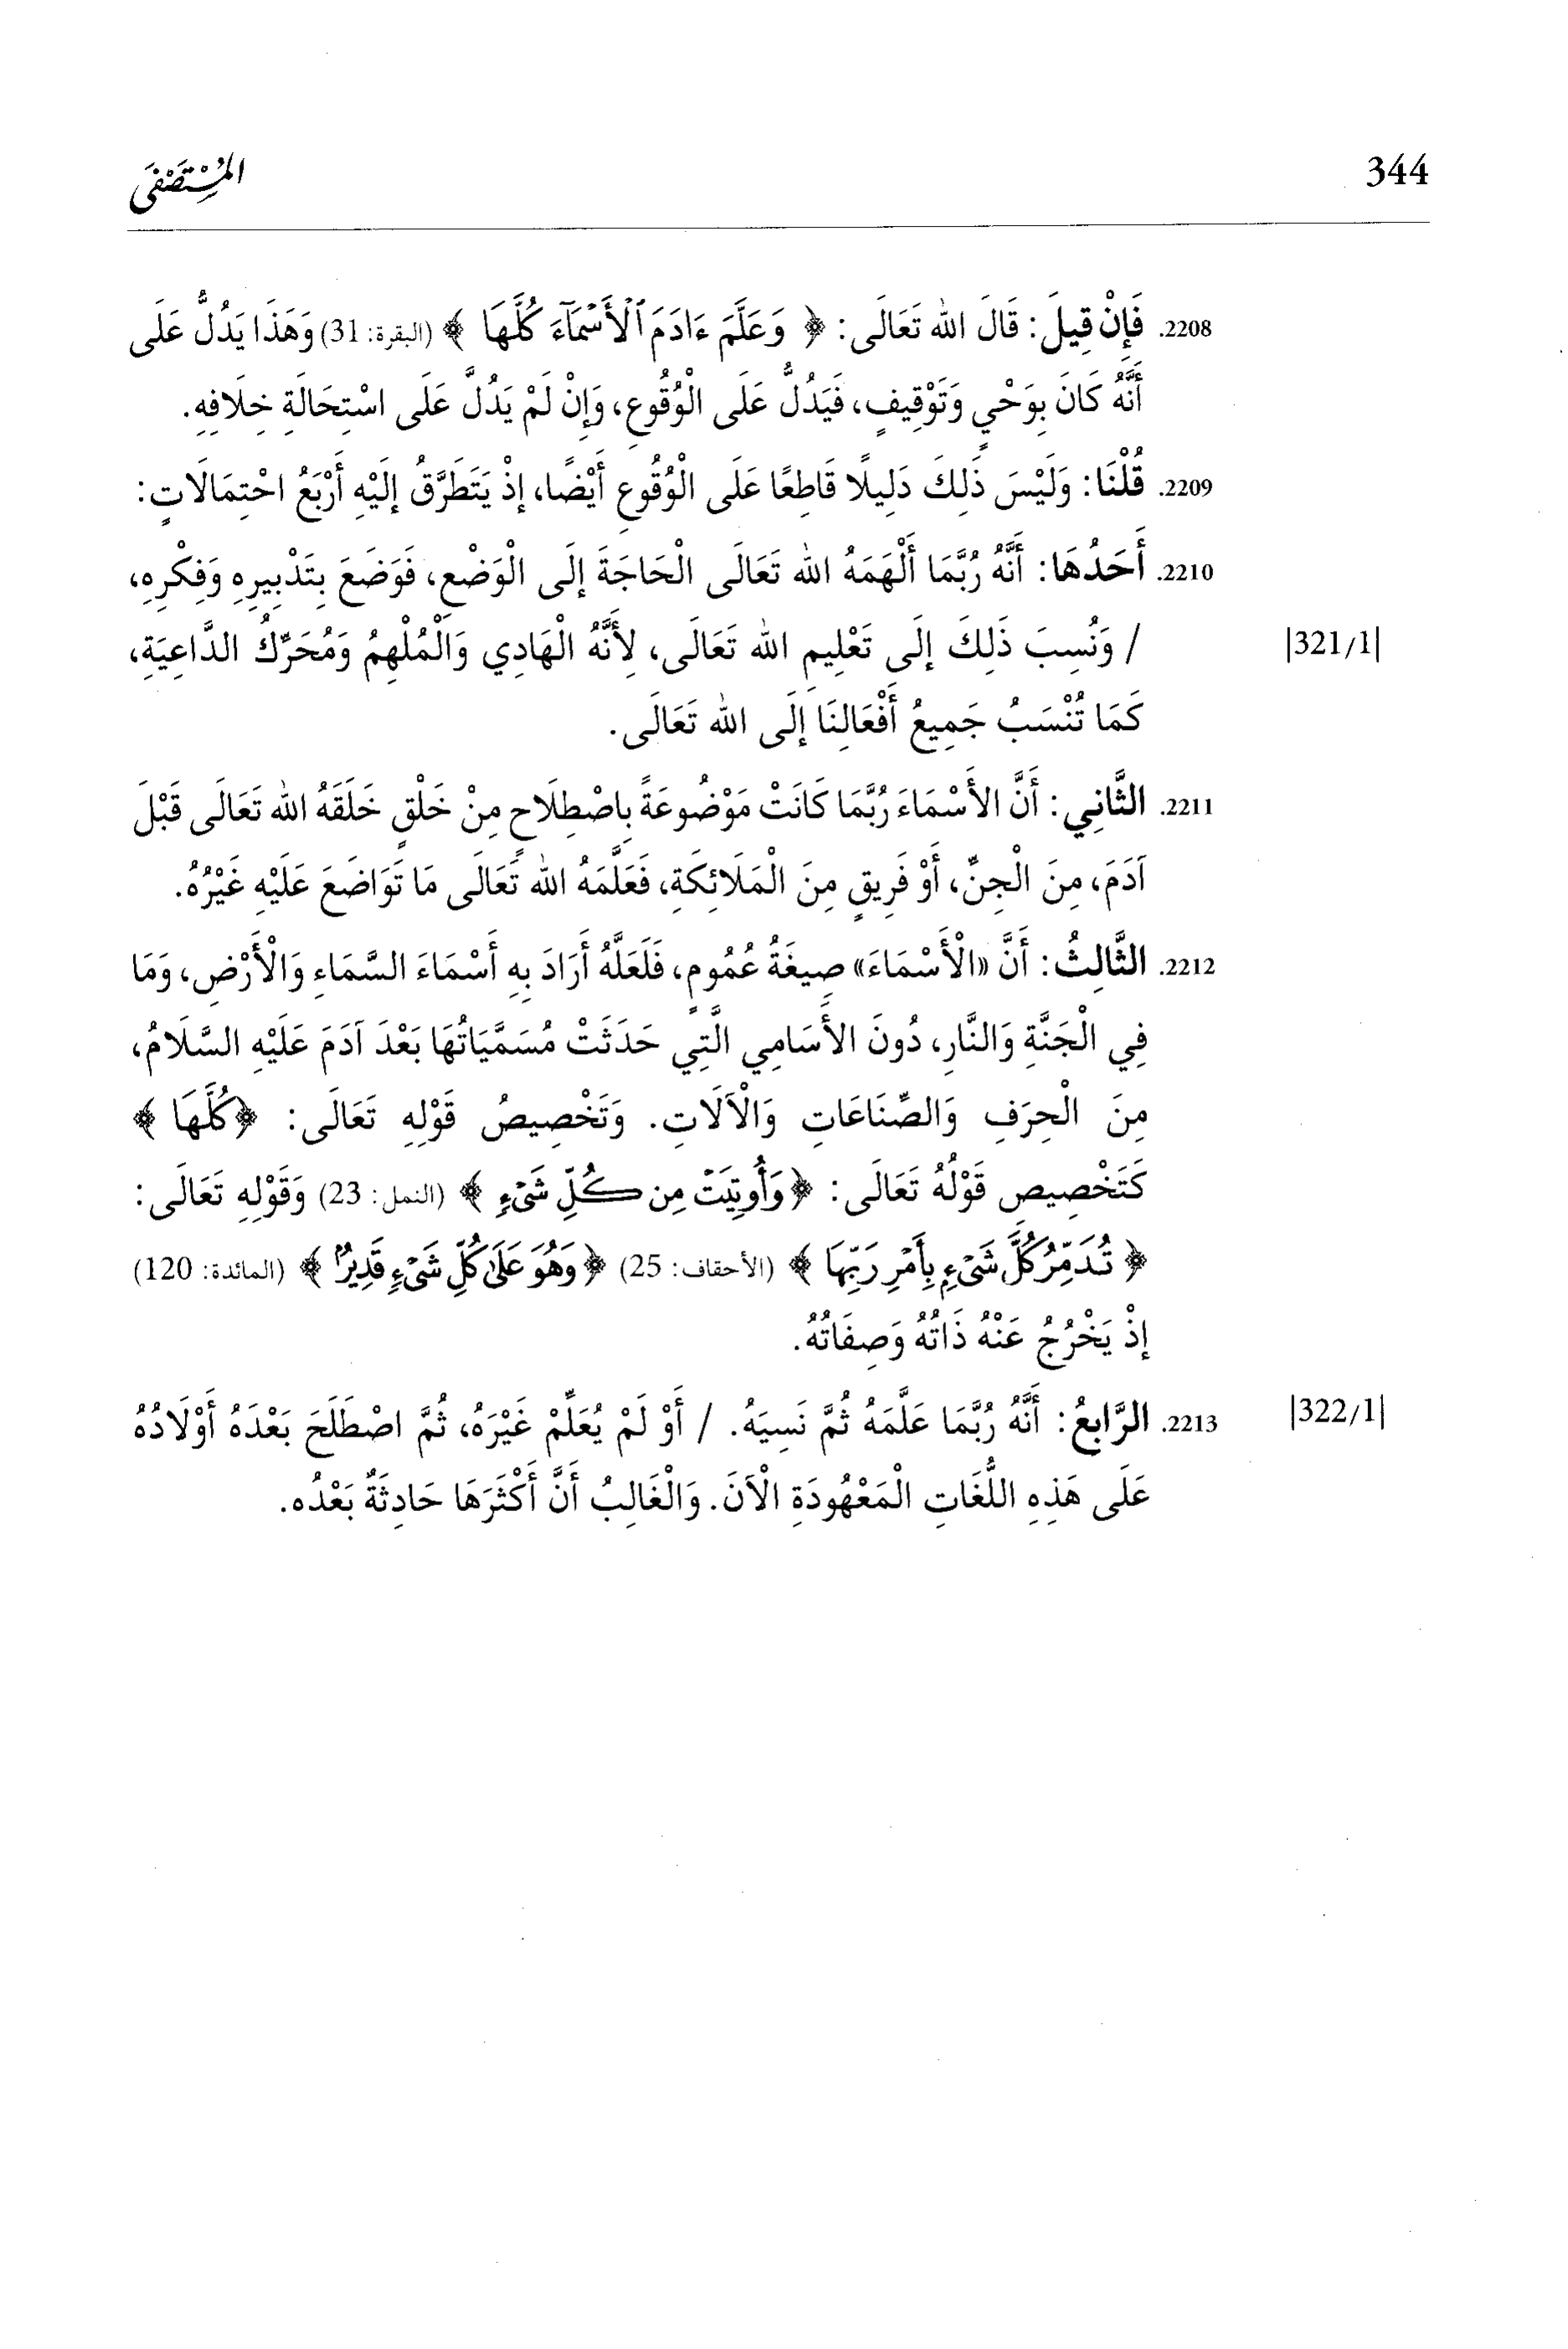 344
المُسْتَصْفَى
2208. فَإِنْ قِيلَ: قَالَ الله تَعَالَى: ﴿ وَعَلَّمَ ءَادَمَ ٱلْأَسْمَآءَ كُلَّهَا ﴾ (البقرة: 31) وَهَذَا يَدُلُّ عَلَى
أَنَّهُ كَانَ بِوَحْيٍ وَتَوْقِيفٍ، فَيَدُلُّ عَلَى الْوُقُوعِ، وَإِنْ لَمْ يَدُلَّ عَلَى اسْتِحَالَةِ خِلَافِهِ.
2209. قُلْنَا: وَلَيْسَ ذَلِكَ دَلِيلًا قَاطِعًا عَلَى الْوُقُوعِ أَيْضًا، إِذْ يَتَطَرَّقُ إِلَيْهِ أَرْبَعُ احْتِمَالَاتٍ:
2210. أَحَدُهَا: أَنَّهُ رُبَّمَا أَلْهَمَهُ الله تَعَالَى الْحَاجَةَ إِلَى الْوَضْعِ، فَوَضَعَ بِتَدْبِيرِهِ وَفِكْرِهِ،
|321/1| / وَنُسِبَ ذَلِكَ إِلَى تَعْلِيمِ الله تَعَالَى، لِأَنَّهُ الْهَادِي وَالْمُلْهِمُ وَمُحَرِّكُ الدَّاعِيَةِ،
كَمَا تُنْسَبُ جَمِيعُ أَفْعَالِنَا إِلَى الله تَعَالَى.
2211. الثَّانِي: أَنَّ الأَسْمَاءَ رُبَّمَا كَانَتْ مَوْضُوعَةً بِاصْطِلَاحٍ مِنْ خَلْقٍ خَلَقَهُ الله تَعَالَى قَبْلَ
آدَمَ، مِنَ الْجِنِّ، أَوْ فَرِيقٍ مِنَ الْمَلَائِكَةِ، فَعَلَّمَهُ الله تَعَالَى مَا تَوَاضَعَ عَلَيْهِ غَيْرُهُ.
2212. الثَّالِثُ: أَنَّ «الْأَسْمَاءَ» صِيغَةُ عُمُومٍ، فَلَعَلَّهُ أَرَادَ بِهِ أَسْمَاءَ السَّمَاءِ وَالْأَرْضِ، وَمَا
فِي الْجَنَّةِ وَالنَّارِ، دُونَ الأَسَامِي الَّتِي حَدَثَتْ مُسَمَّيَاتُهَا بَعْدَ آدَمَ عَلَيْهِ السَّلَامُ،
مِنَ الْحِرَفِ وَالصِّنَاعَاتِ وَالْآلَاتِ. وَتَخْصِيصُ قَوْلِهِ تَعَالَى: ﴿كُلَّهَا ﴾
كَتَخْصِيصِ قَوْلُهُ تَعَالَى: ﴿وَأُوتِيَتْ مِن كُلِّ شَىْءٍ ﴾ (النمل: 23) وَقَوْلِهِ تَعَالَى:
﴿ تُدَمِّرُ كُلَّ شَىْءٍ بِأَمْرِ رَبِّهَا ﴾ (الأحقاف: 25) ﴿وَهُوَ عَلَىٰ كُلِّ شَىْءٍ قَدِيرٌ ﴾ (المائدة: 120)
إِذْ يَخْرُجُ عَنْهُ ذَاتُهُ وَصِفَاتُهُ.
|322/1| 2213. الرَّابِعُ: أَنَّهُ رُبَّمَا عَلَّمَهُ ثُمَّ نَسِيَهُ. / أَوْ لَمْ يُعَلِّمْ غَيْرَهُ، ثُمَّ اصْطَلَحَ بَعْدَهُ أَوْلَادُهُ
عَلَى هَذِهِ اللُّغَاتِ الْمَعْهُودَةِ الْآنَ. وَالْغَالِبُ أَنَّ أَكْثَرَهَا حَادِثَةٌ بَعْدُه.